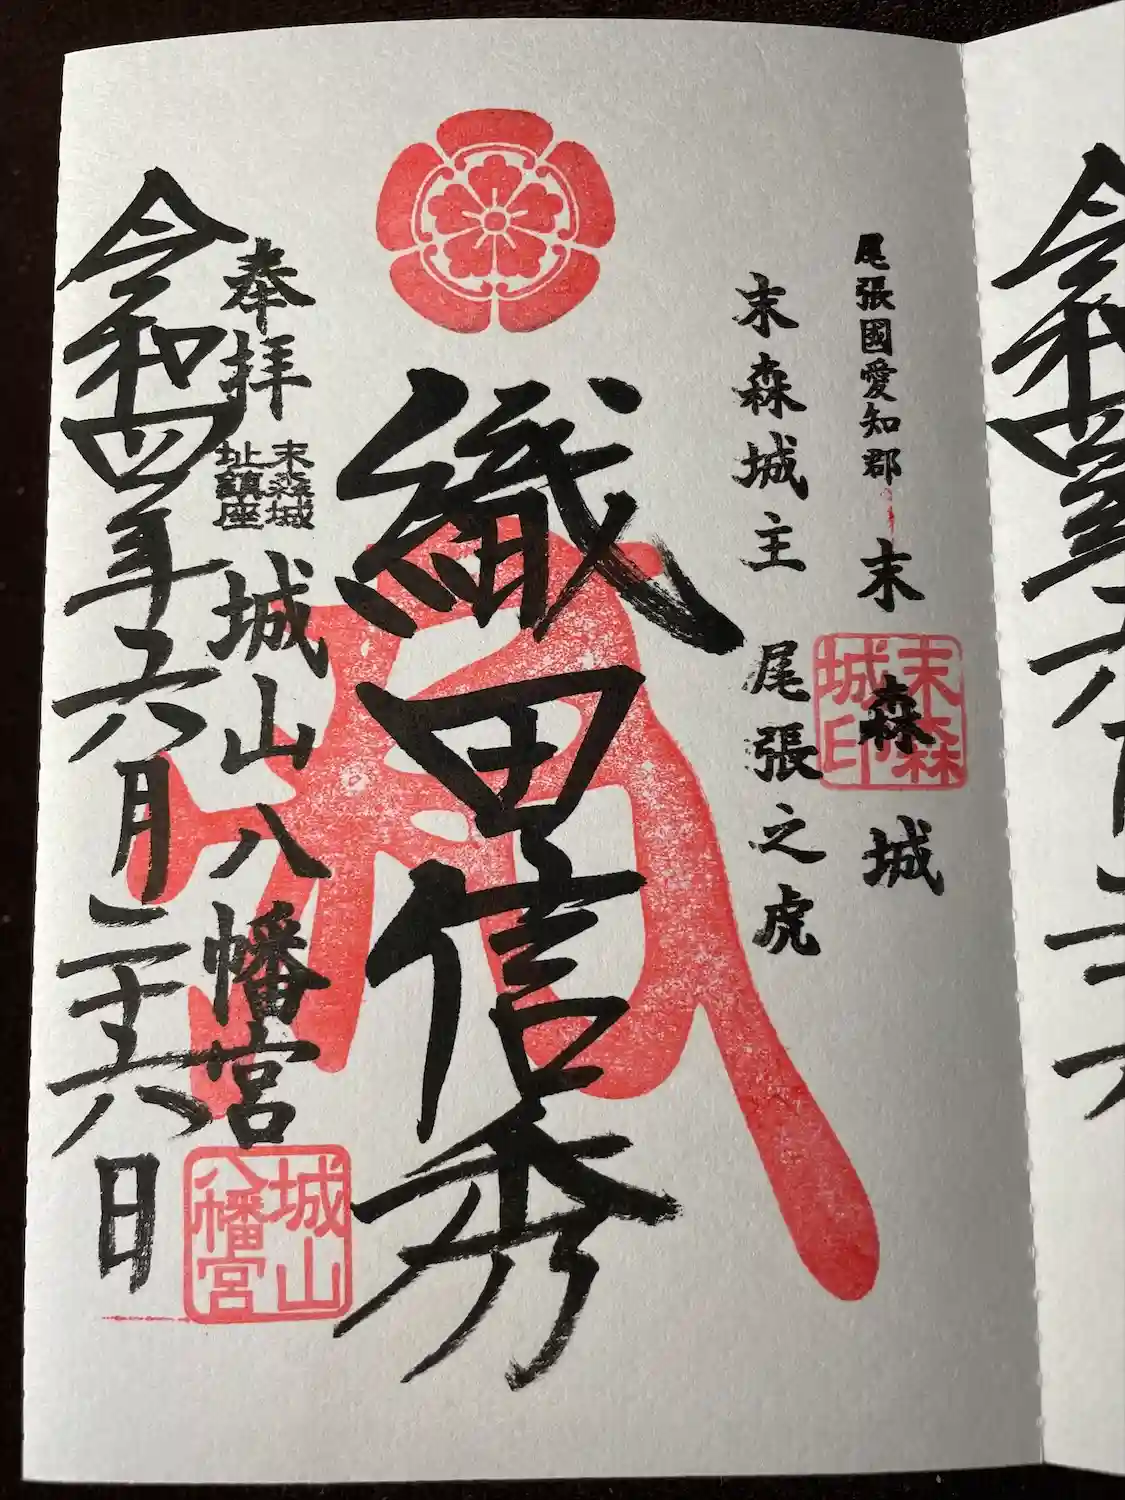 尾張國愛知郡 末森城
末森城印
末森城主 尾張之虎
織田信秀
奉拝
末森城
址鎮座
城山八幡宮
城山八幡宮
令和四年六月二十六日